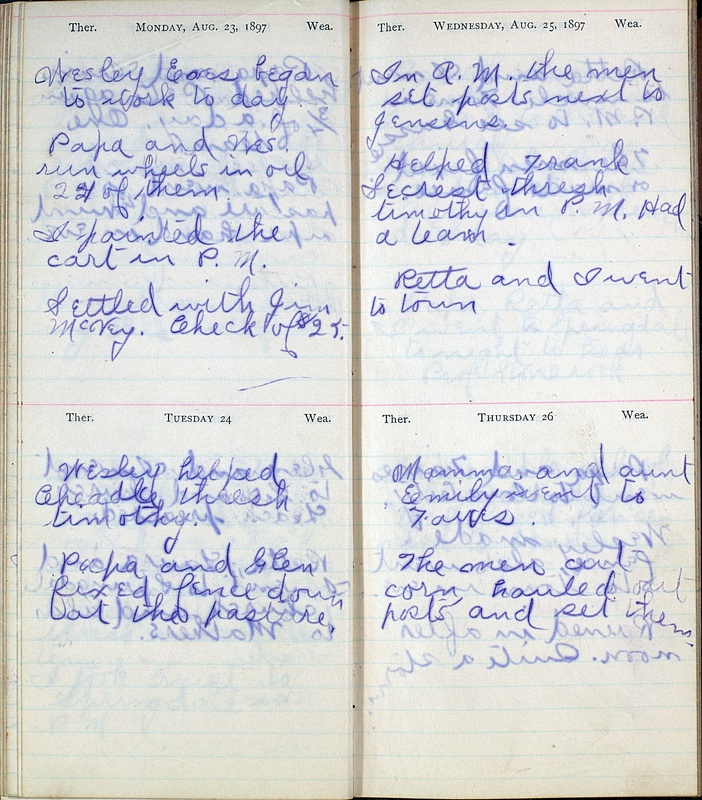 Ther. MONDAY, AUG. 23, 1897 Wea.
Wesley Eves began
to work to day.
Papa and Wes
run wheels in oil
24 of them
I painted the
cart in P. M.
Settled with Jim
McVey. Check of $25.
Ther. TUESDAY 24 Wea.
Wesley helped
Cheadle thresh
timothy.
Papa and Glen
fixed fence down
at the pasture.
Ther. WEDNESDAY, AUG. 25, 1897 Wea.
In A. M. the men
set posts next to
Jensens.
Helped Frank
Secrest thresh
timothy in P. M. Had
a team.
Retta and I went
to town
Ther. THURSDAY 26 Wea.
Mamma and aunt
Emily went to
The men cut
corn hauled out
posts and set them